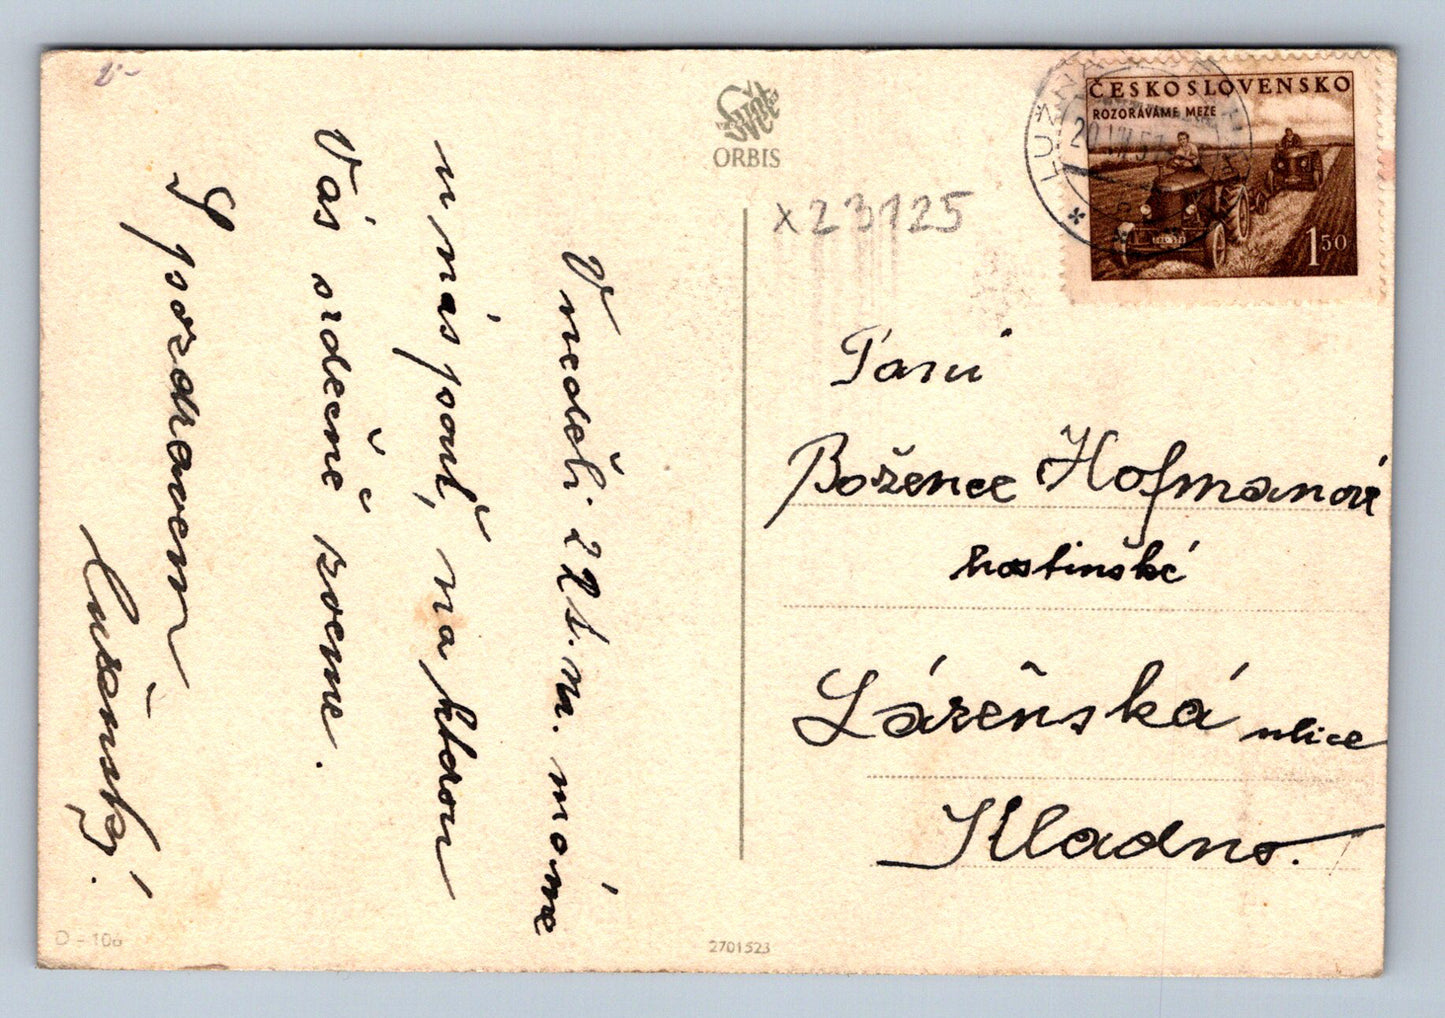 V neděli 22 t.m. máme
u nás pouť, na kterou
Vás srdečně zveme.
S pozdravem
Svět
ORBIS
x23125
ČESKOSLOVENSKO
ROZORÁVÁME MEZE
1 50
Paní
Božence Hofmanové
hostinské
Lázeňská ulice
Kladno.
D-106
2701523